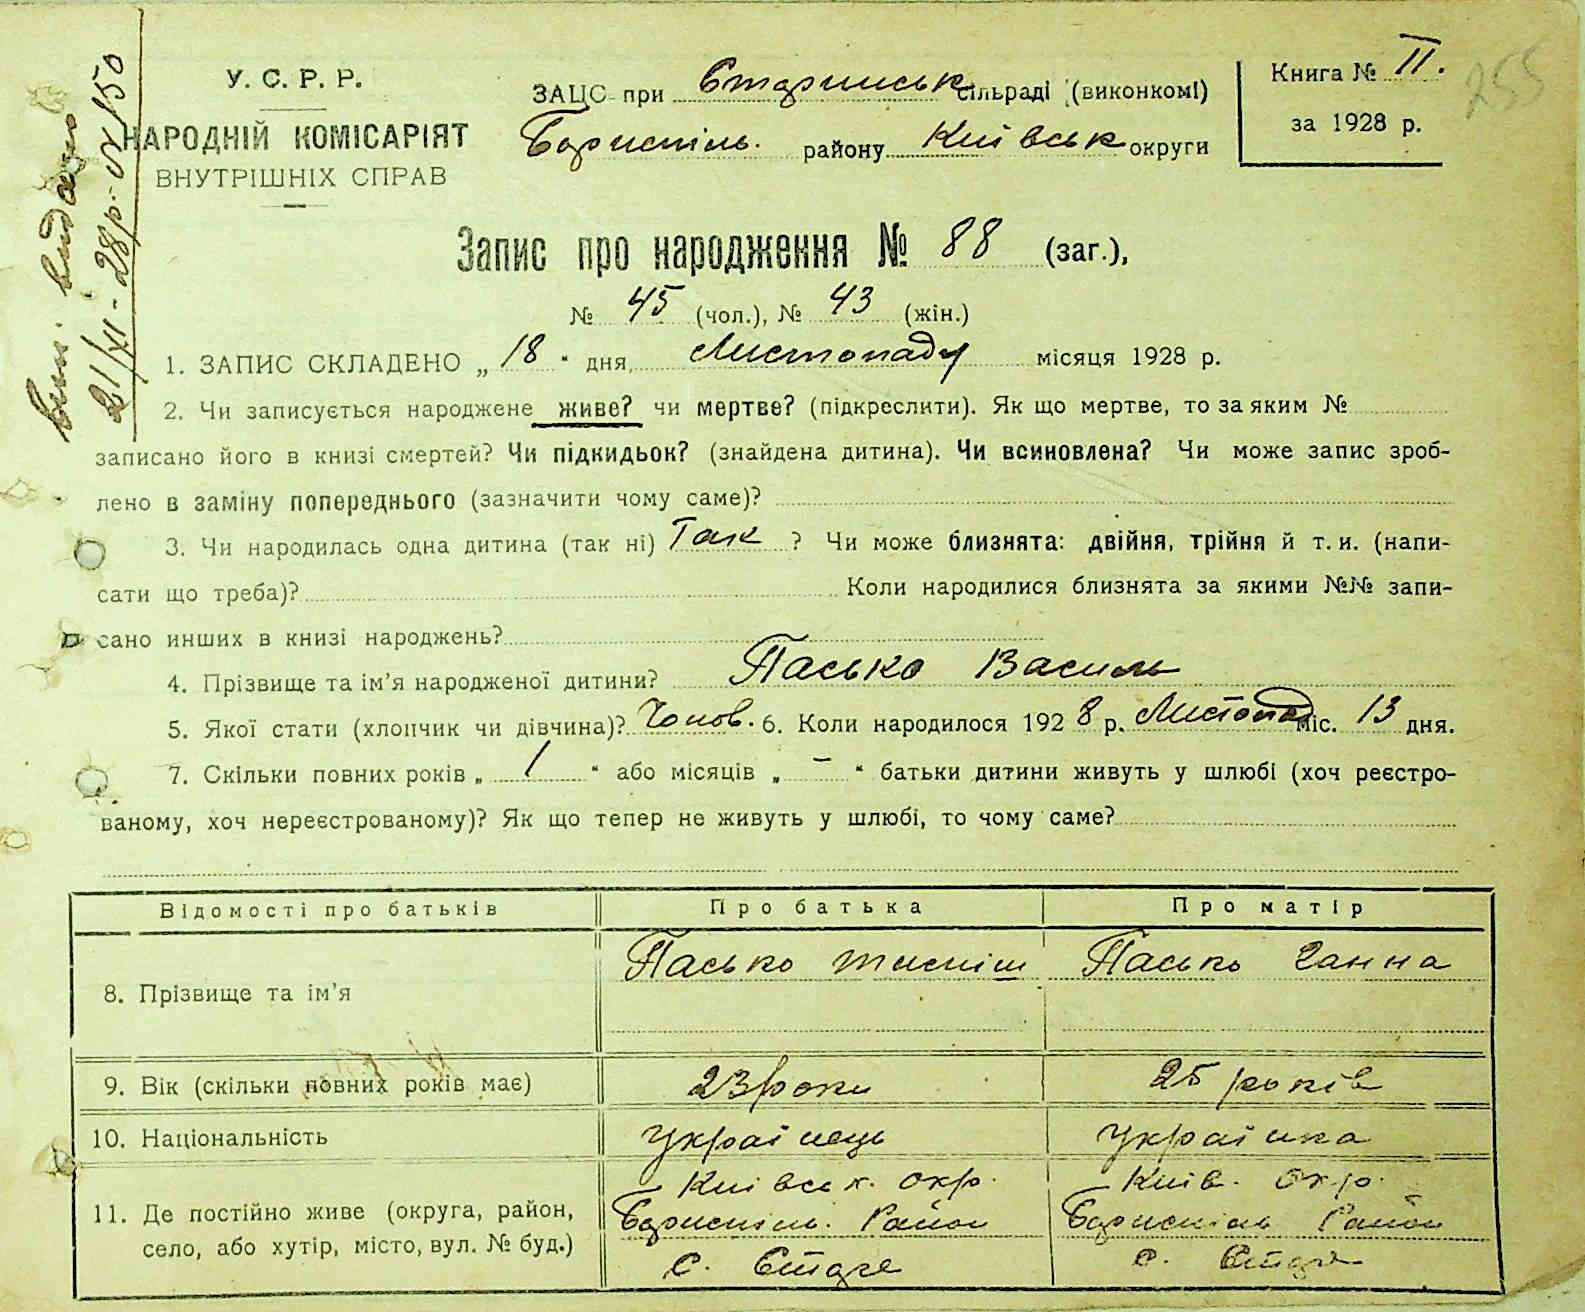 Вип. видано
21/XI - 28 р.
У. С. Р. Р.
НАРОДНІЙ КОМІСАРІЯТ
ВНУТРІШНІХ СПРАВ
ЗАЦС при Старинськ сільраді (виконкомі)
Бориспіль. району Київськ округи
Книга № II.
за 1928 р.
255
Запис про народження № 88 (заг.),
№ 45 (чол.), № 43 (жін.)
1. ЗАПИС СКЛАДЕНО „ 18 “ дня, Листопаду місяця 1928 р.
2. Чи записується народжене живе? чи мертве? (підкреслити). Як що мертве, то за яким №
записано його в книзі смертей? Чи підкидьок? (знайдена дитина). Чи всиновлена? Чи може запис зроб-
лено в заміну попереднього (зазначити чому саме)?
3. Чи народилась одна дитина (так ні) Так ? Чи може близнята: двійня, трійня й т. и. (напи-
сати що треба)? Коли народилися близнята за якими №№ запи-
сано инших в книзі народжень?
4. Прізвище та ім’я народженої дитини? Пасько Василь
5. Якої стати (хлопчик чи дівчина)? Чолов. 6. Коли народилося 1928 р. Листопад міс. 13 дня.
7. Скільки повних років „ 1 “ або місяців „ — “ батьки дитини живуть у шлюбі (хоч реєстро-
ваному, хоч нереєстрованому)? Як що тепер не живуть у шлюбі, то чому саме?
Відомості про батьків Про батька Про матір
8. Прізвище та ім’я Пасько Пасько Ганна
9. Вік (скільки повних років має) 23 роки 25 років
10. Національність Українець Українка
11. Де постійно живе (округа, район, село, або хутір, місто, вул. № буд.) Київськ. окр. Київ. окр.
Бориспіль. Район Бориспіль Район
с. Старе с. Старе